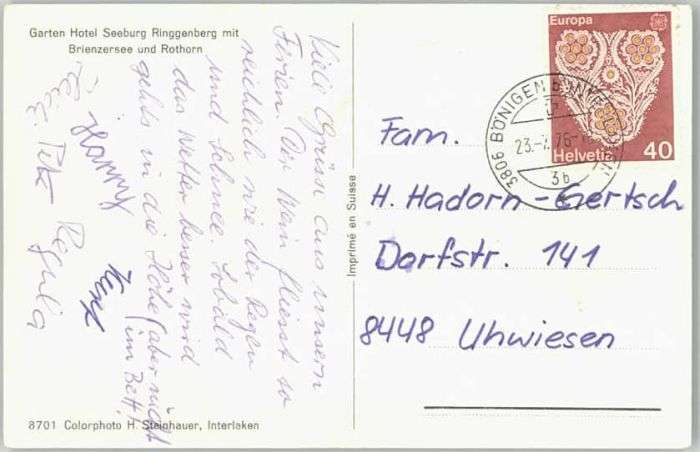 Garten Hotel Seeburg Ringgenberg mit
Brienzersee und Rothorn
Viele Grüsse aus unsern
Ferien. Der Wein fliesst so
reichlich wie der Regen
und Schnee. Sobald
das Wetter besser wird
gehts in die Höhe (aber nicht
im Bett!
Harry
Regula
8701 Colorphoto H. Steinhauer, Interlaken
Imprimé en Suisse
Europa
Helvetia 40
3806 BÖNIGEN B. INTERLAKEN
23.-7.76
3b
Fam.
H. Hadorn-Gertsch
Dorfstr. 141
8448 Uhwiesen